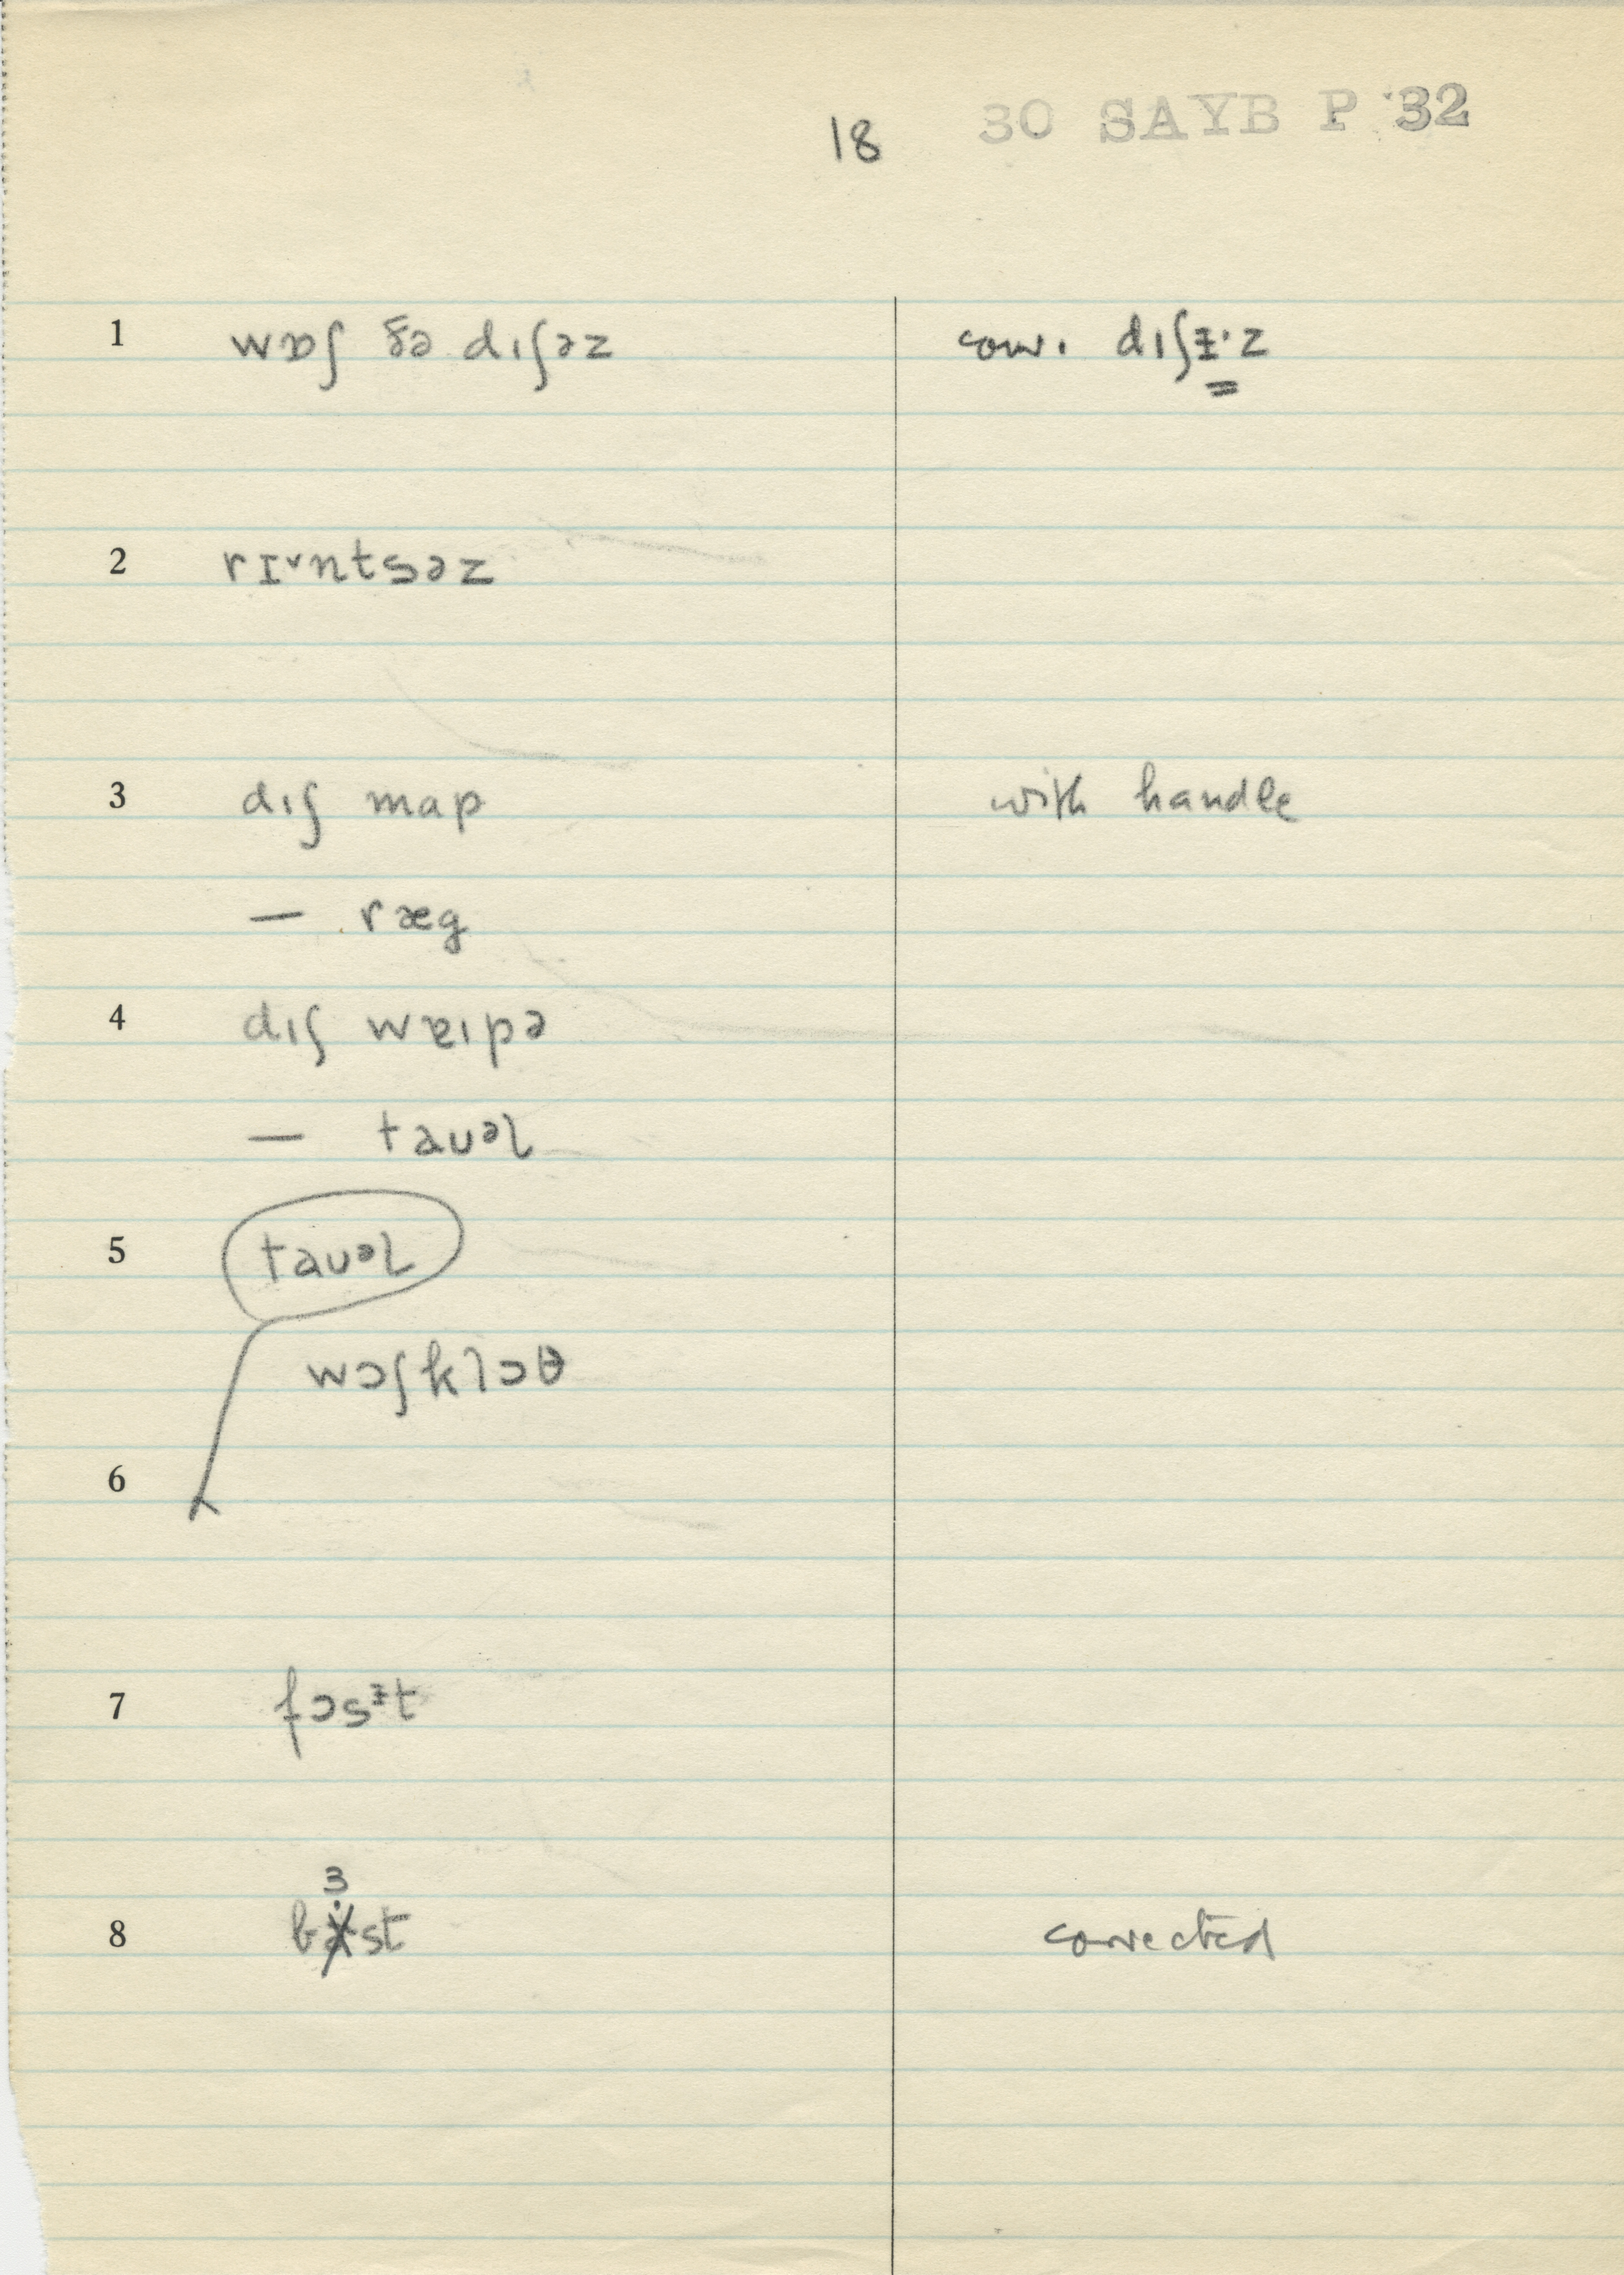 18 30 SAYB P 32
1 wɒʃ ðə dɪʃəz conv. dɪʃᵻ·z
2 rɪ˅ntsəz
3 dɪʃ map with handle
— ræg
4 dɪʃ wɐɪpə
— taʊᵊl
5 taʊᵊl
wɔʃklɔθ
6
7 fɔsᵻt
8 bɜst corrected